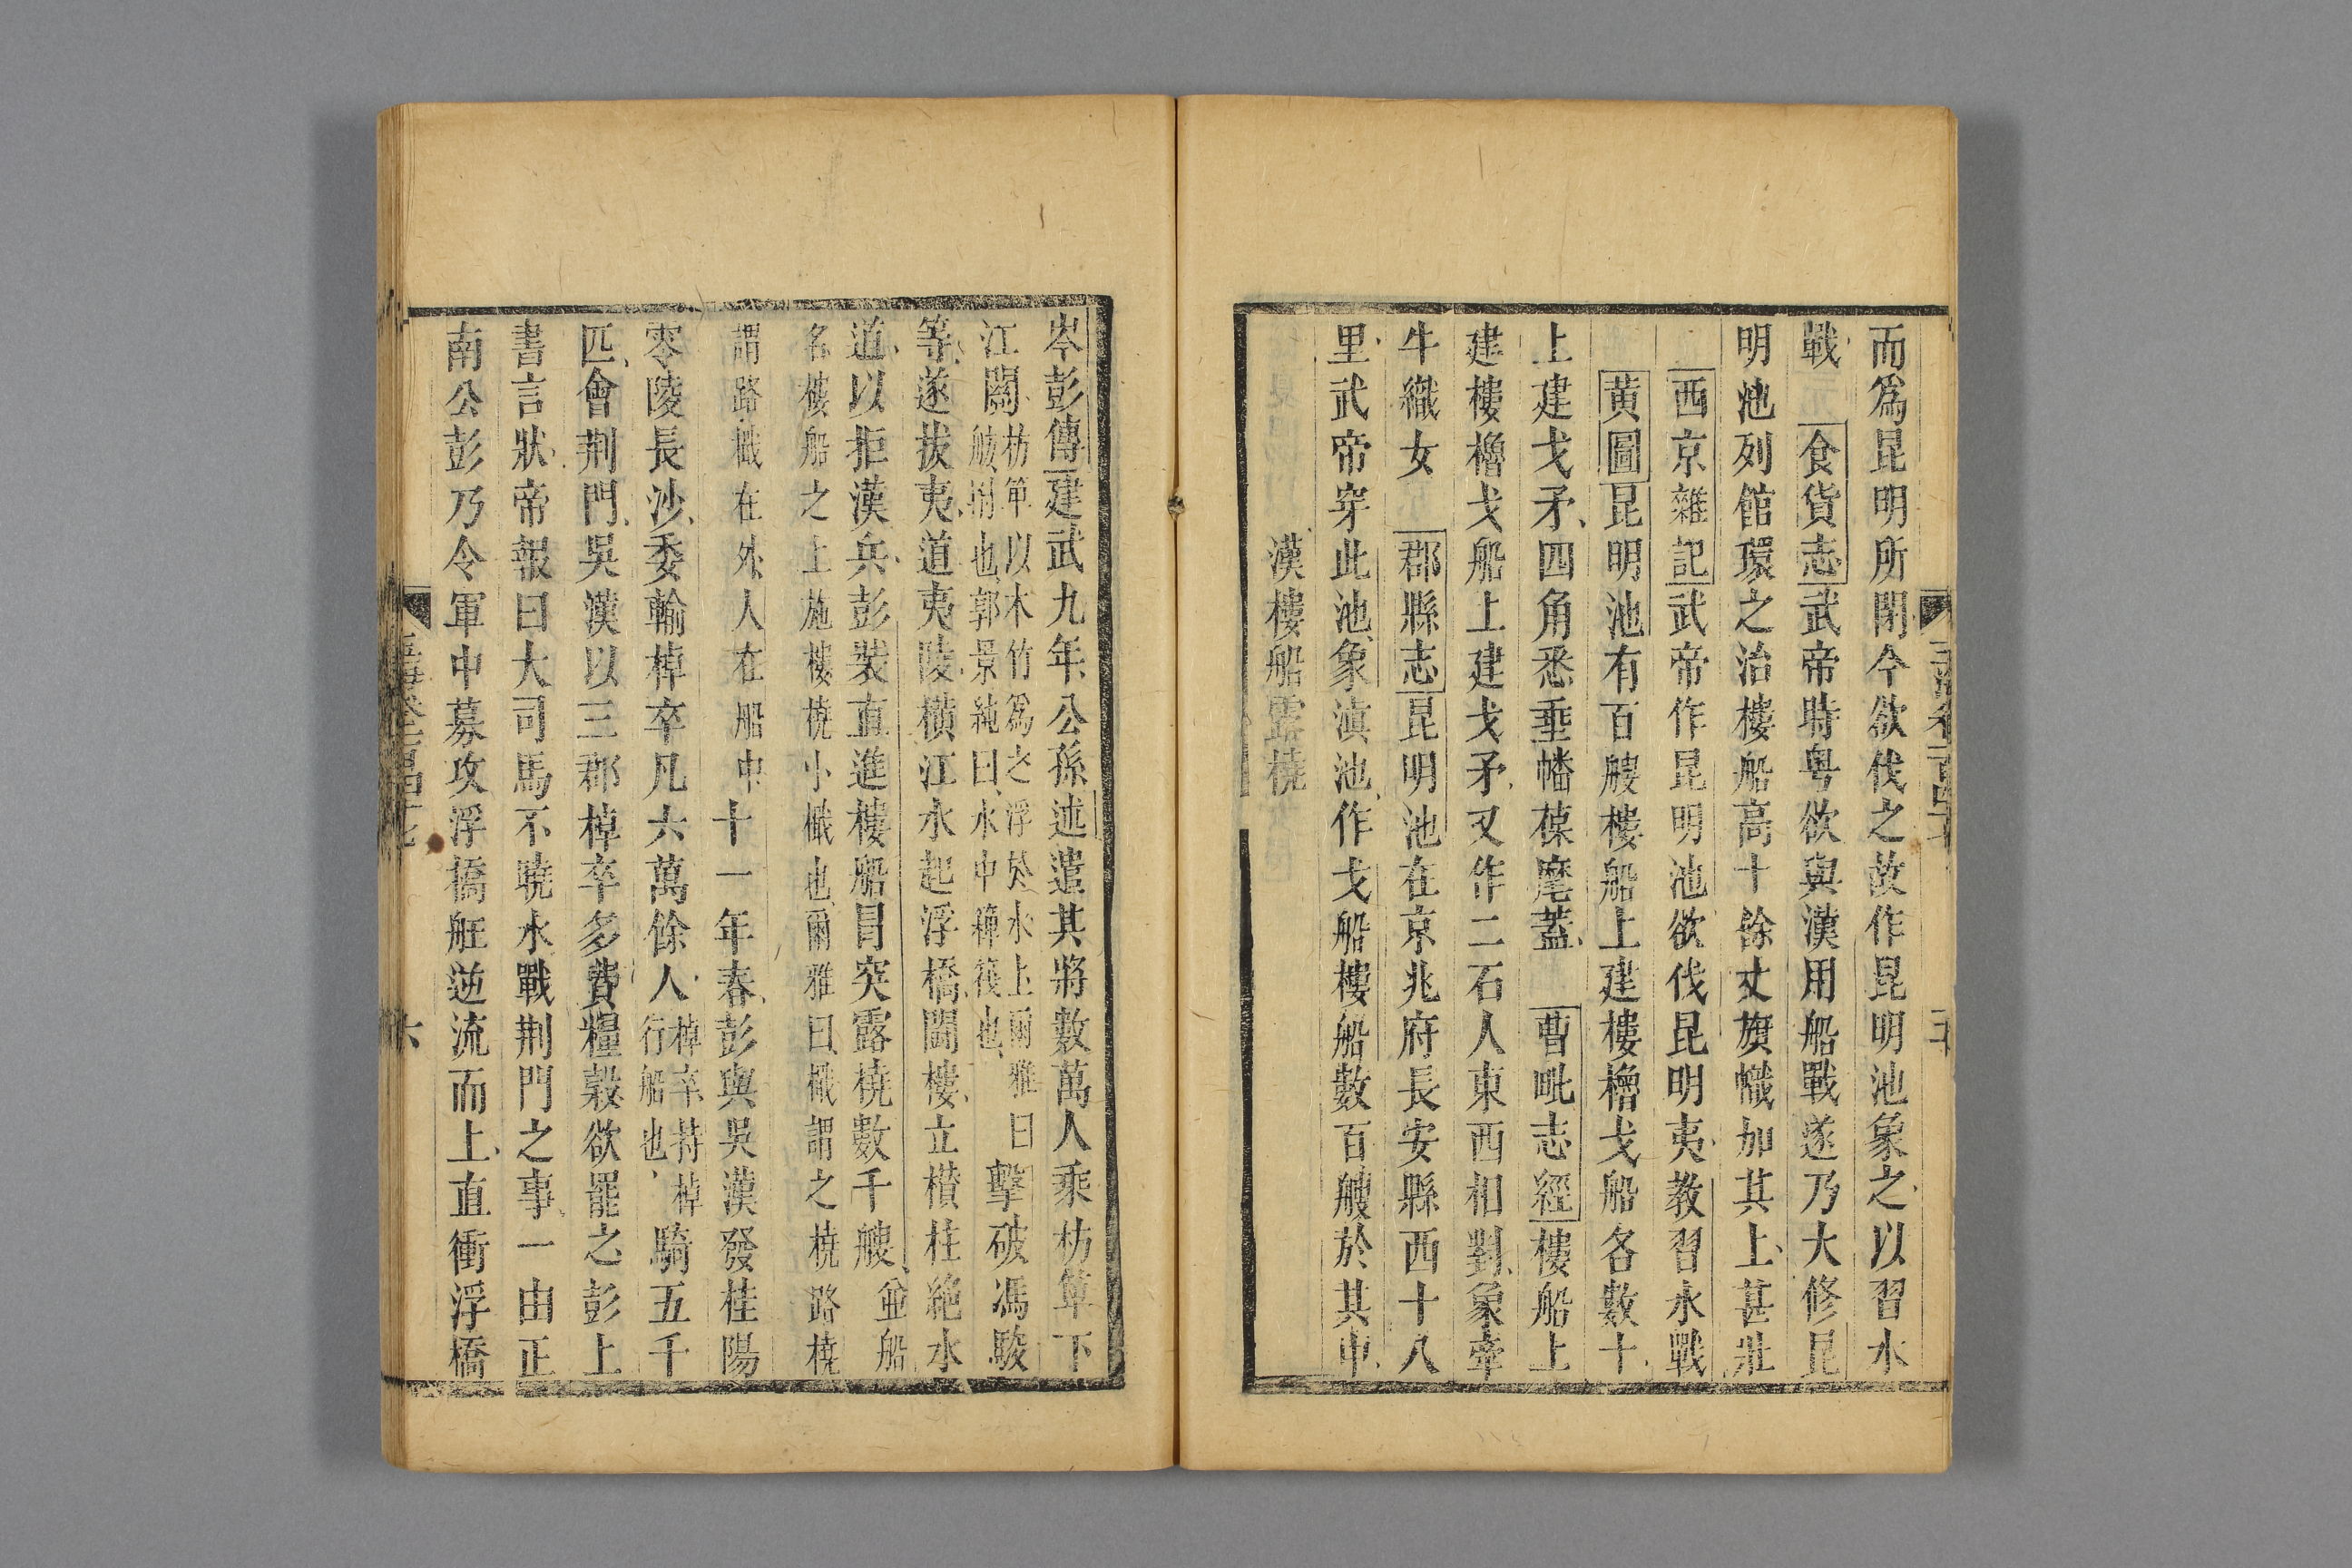 而爲昆明所閉今欲伐之故作昆明池象之以習水
戰 食貨志武帝時粤欲與漢用船戰遂乃大修昆
明池列館環之治樓船高十餘丈旗幟加其上甚壯
西京雜記武帝作昆明池欲伐昆明夷教習水戰
黄圖昆明池有百艘樓船上建樓櫓戈船各數十
上建戈矛四角悉垂幡葆麾蓋 曹毗志經樓船上
建樓櫓戈船上建戈矛又作二石人東西相對象牽
牛織女 郡縣志昆明池在京兆府長安縣西十八
里武帝穿此池象滇池作戈船樓船數百艘於其中
漢樓船露橈
岑彭傳建武九年公孫述遣其將數萬人乘枋箄下
江關
枋箄以木竹爲之浮於水上爾雅曰
舫泭也郭景純曰水中䉬筏也
擊破馮駿
等遂拔夷道夷陵橫江水起浮橋鬬樓立欑柱絶水
道以拒漢兵彭裝直進樓船冒突露橈數千艘
並船
名樓船之上施樓橈小檝也爾雅曰檝謂之橈路橈
謂路檝在外人在船中
十一年春彭與吳漢發桂陽
零陵長沙委輸棹卒凡六萬餘人
棹卒持棹
行船也
騎五千
匹會荆門吳漢以三郡棹卒多費糧穀欲罷之彭上
書言狀帝報曰大司馬不曉水戰荆門之事一由正
南公彭乃令軍中募攻浮橋舡逆流而上直衝浮橋
六